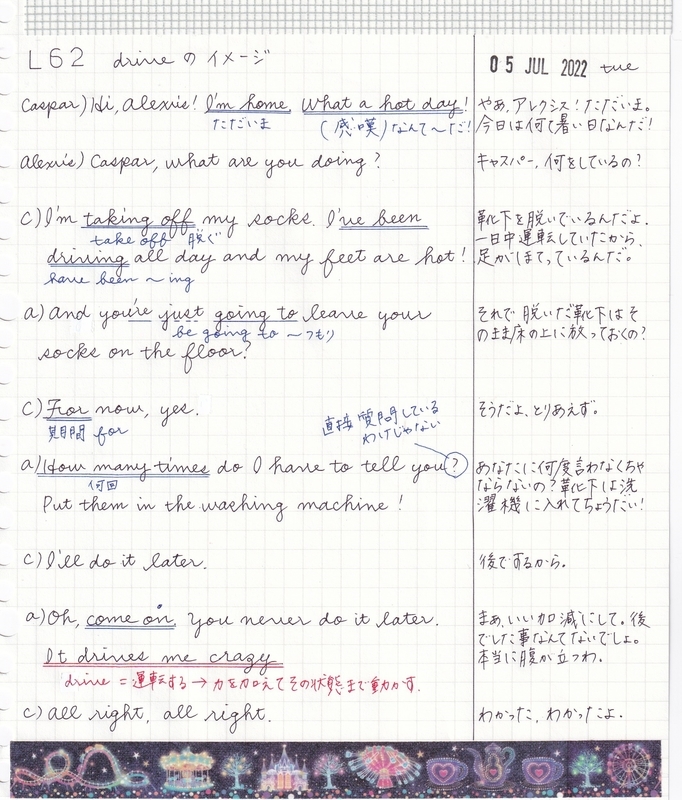 L62 driveのイメージ
05 JUL 2022 tue
Caspar) Hi, Alexis! I'm home. What a hot day!
ただいま
(感嘆)なんて〜だ!
やあ、アレクシス!ただいま。
今日は何て暑い日なんだ!
Alexis) Caspar, what are you doing?
キャスパー、何をしているの?
C) I'm taking off my socks. I've been
take off 脱ぐ
driving all day and my feet are hot!
have been 〜ing
靴下を脱いでいるんだよ。
一日中運転していたから、
足がほてっているんだ。
a) And you're just going to leave your
be going to 〜つもり
socks on the floor?
それで脱いだ靴下はそ
のまま床の上に放っておくの?
C) For now, yes.
期間 for
そうだよ、とりあえず。
直接質問している
わけじゃない
a) How many times do I have to tell you?
何回
Put them in the washing machine!
あなたに何度言わなくちゃ
ならないの?靴下は洗
濯機に入れてちょうだい!
C) I'll do it later.
後でするから。
a) Oh, come on. You never do it later.
It drives me crazy
drive = 運転する → 力を加えてその状態まで動かす.
まあ、いい加減にして。後
でした事なんてないでしょ。
本当に腹が立つわ。
C) All right, all right.
わかった、わかったよ。